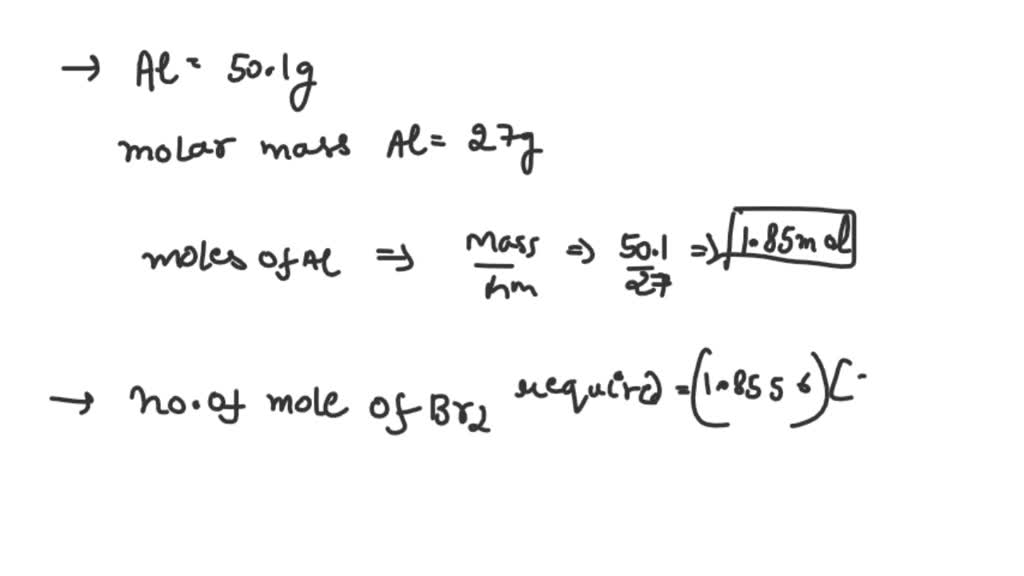 → Al = 50.1g
molar mass Al = 27g
moles of Al ⇒ Mass / hm ⇒ 50.1 / 27 ⇒ 1.85mol
→ no. of mole of Br2 required = (1.8556)(